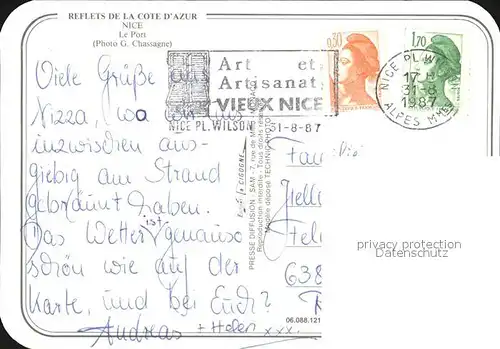 REFLETS DE LA COTE D'AZUR
NICE
Le Port
(Photo G. Chassagne)
0,30
1,70
Art et
Artisanat
VIEUX NICE
NICE PL. WILSON 31-8-87
NICE PL. W
17 H
31-8
1987
ALPES MMES
Viele Grüße aus
Nizza, wo wir uns
inzwischen aus-
giebig am Strand
gebräunt haben.
Das Wetter ist genauso
schön wie auf der
Karte, und bei Euch?
Andreas + Helen xxx.
Edit. "La CIGOGNE"
PRESSE DIFFUSION SAM - 7, rue de
Reproduction interdite - Tous droits
Modèle déposé TECHNIC PHOTO
Fam
638
06.088.121
privacy protection
Datenschutz